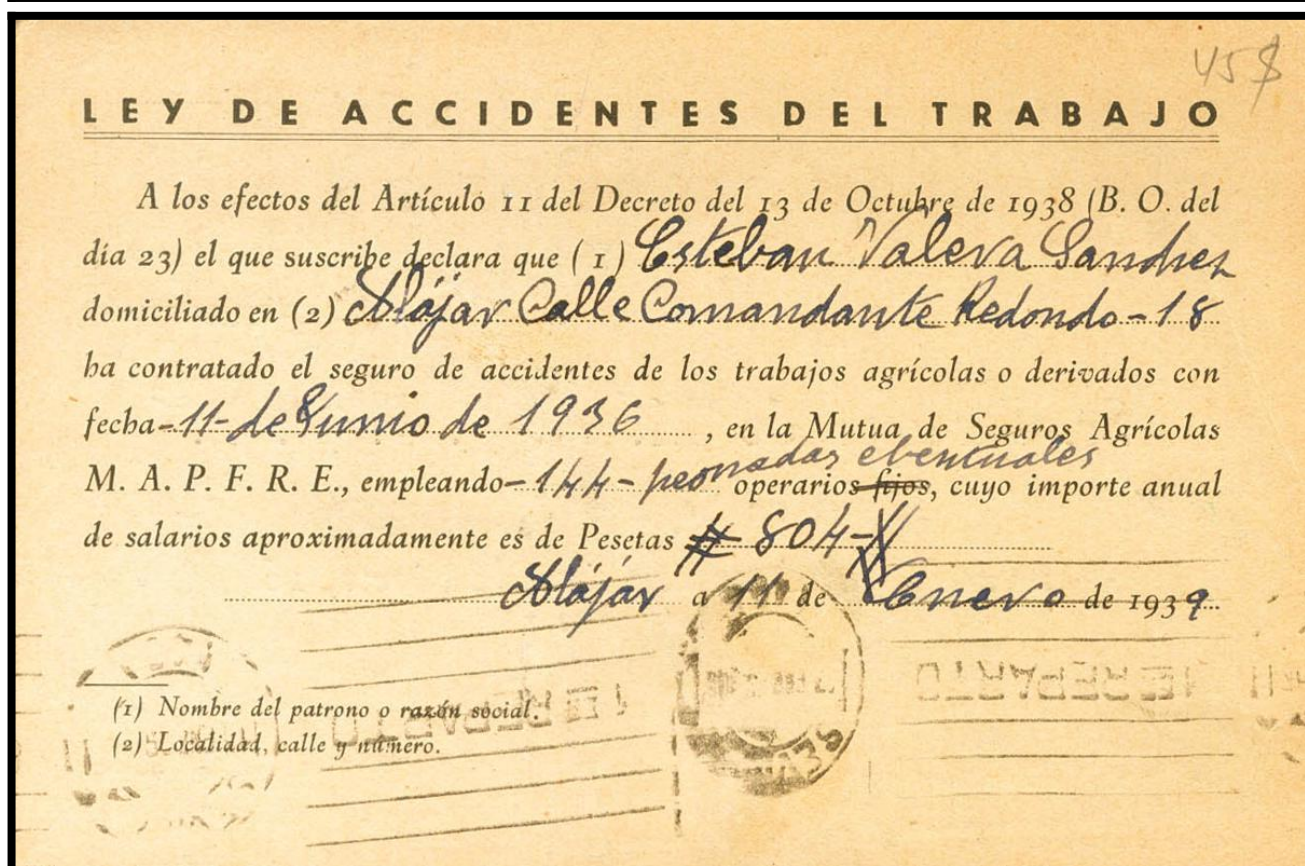 458
LEY DE ACCIDENTES DEL TRABAJO
A los efectos del Artículo 11 del Decreto del 13 de Octubre de 1938 (B. O. del
día 23) el que suscribe declara que (1) Esteban Valera Sanchez
domiciliado en (2) Alájar Calle Comandante Redondo - 18
ha contratado el seguro de accidentes de los trabajos agrícolas o derivados con
fecha - 11 - de Junio de 1936, en la Mutua de Seguros Agrícolas
M. A. P. F. R. E., empleando - 144 - peonadas ebentuales operarios fijos, cuyo importe anual
de salarios aproximadamente es de Pesetas # 804 - #
Alájar a 11 de Enero de 1939.
1 E REPARTO
1 E REPARTO
(1) Nombre del patrono o razón social.
(2) Localidad, calle y número.